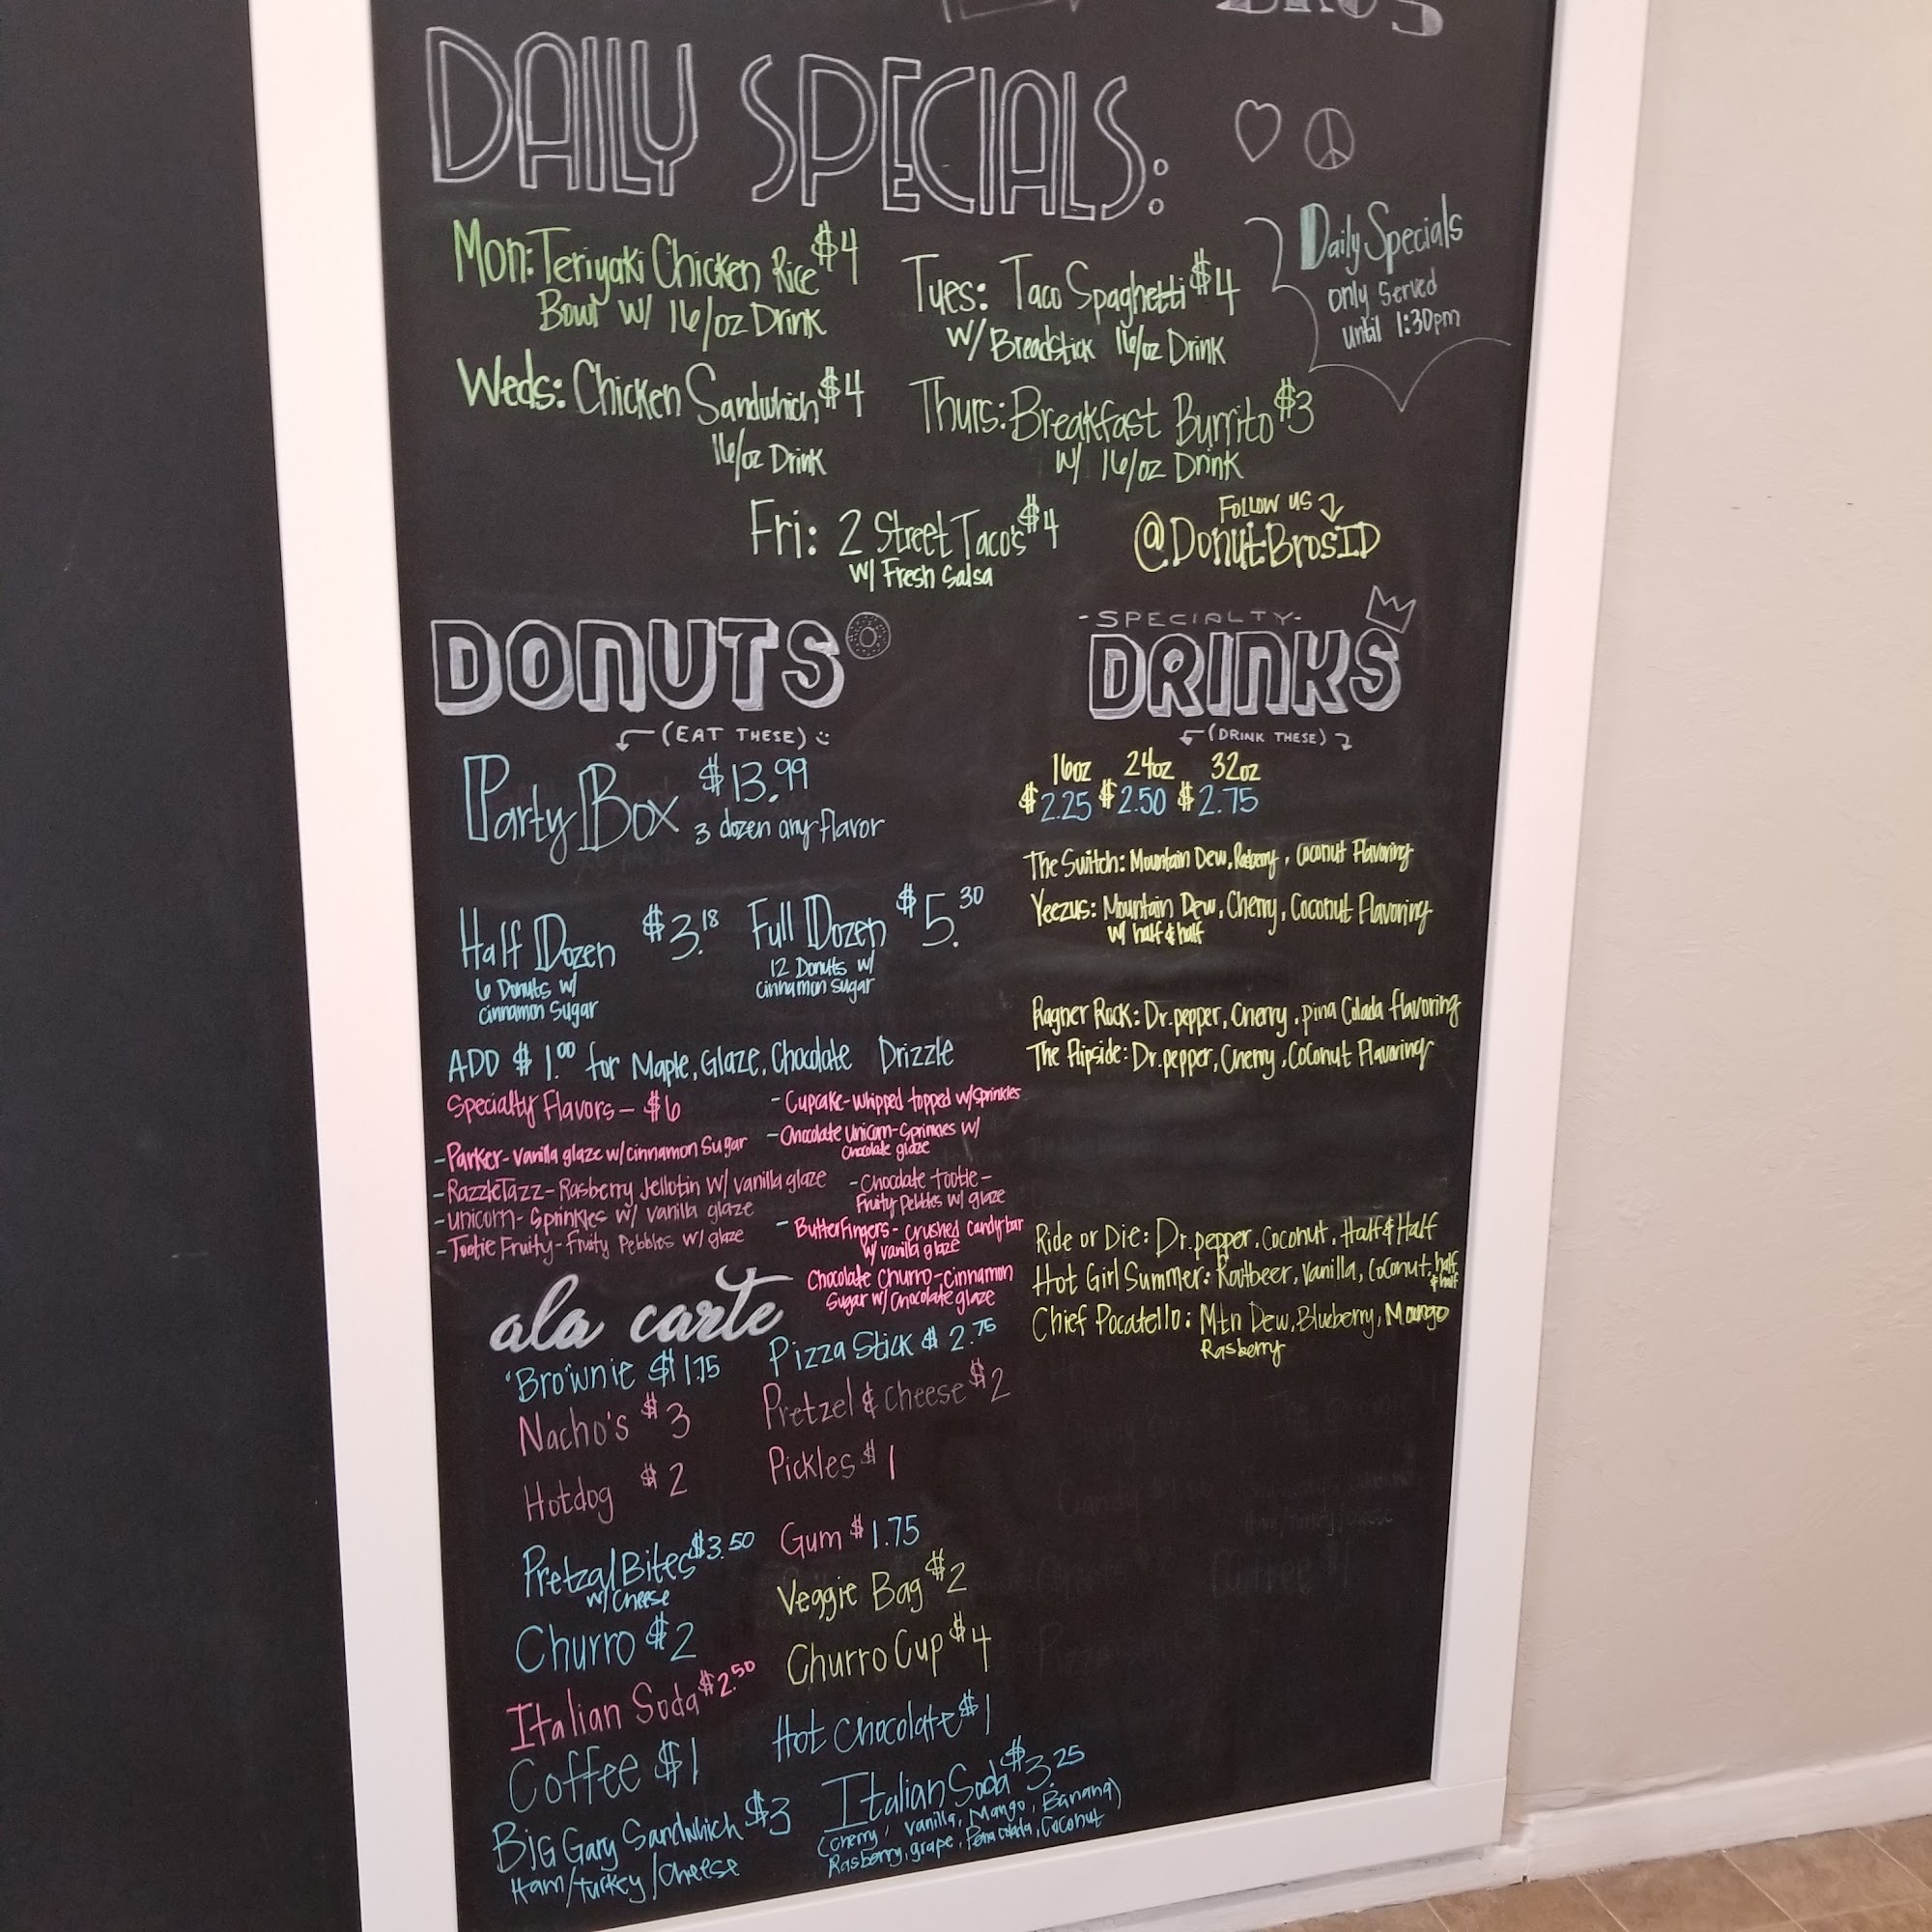 BROS
DAILY SPECIALS:
Mon: Teriyaki Chicken Rice $4
Bowl w/ 16/oz Drink
Tues: Taco Spaghetti $4
w/ Breadstick 16/oz Drink
Daily Specials
only served
until 1:30pm
Weds: Chicken Sandwhich, $4
16/oz Drink
Thurs: Breakfast Burrito $3
w/ 16/oz Drink
Fri: 2 Street Taco's $4
w/ Fresh Salsa
Follow us
@DonutBrosID
DONUTS
(EAT THESE)
Party Box $13.99
3 dozen any flavor
Half Dozen $3.18
6 Donuts w/
cinnamon Sugar
Full Dozen $5.30
12 Donuts w/
cinnamon sugar
ADD $1.00 for Maple, Glaze, Chocolate Drizzle
Specialty Flavors - $6
- Parker - vanilla glaze w/cinnamon Sugar
- RazzleTazz - Rasberry Jellotin w/ vanilla glaze
- unicorn - Sprinkles w/ vanilla glaze
- Tootie Fruity - Fruity Pebbles w/ glaze
- Cupcake - whipped topped w/sprinkles
- Chocolate Unicorn - Sprinkles w/
Chocolate glaze
- Chocolate tootie -
Fruity Pebbles w/ glaze
- ButterFingers - crushed candy bar
w/ vanilla glaze
Chocolate Churro - cinnamon
Sugar w/ Chocolate glaze
-SPECIALTY-
DRINKS
(DRINK THESE)
16oz 24oz 32oz
$2.25 $2.50 $2.75
The Switch: Mountain Dew, Rasberry, coconut Flavoring
Yeezus: Mountain Dew, Cherry, Coconut Flavoring
w/ half & half
Ragner Rock: Dr.pepper, Cherry, pina Colada flavoring
The Flipside: Dr.pepper, Cherry, Coconut Flavoring
Ride or Die: Dr.pepper, Coconut, Half & Half
Hot Girl Summer: Rootbeer, Vanilla, Coconut, half
& half
Chief Pocatello: Mtn Dew, Blueberry, Mango
Rasberry
ala carte
Brownie $1.75
Nacho's $3
Hotdog $2
Pretzal Bites $3.50
w/ Cheese
Churro $2
Italian Soda $2.50
Coffee $1
Big Gary Sandwhich $3
Ham/Turkey/Cheese
Pizza Stick $2.75
Pretzel & cheese $2
Pickles $1
Gum $1.75
Veggie Bag $2
Churro Cup $4
Hot Chocolate $1
Italian Soda $3.25
(cherry, vanilla, Mango, Banana)
Rasberry, grape, Pena colada, Coconut